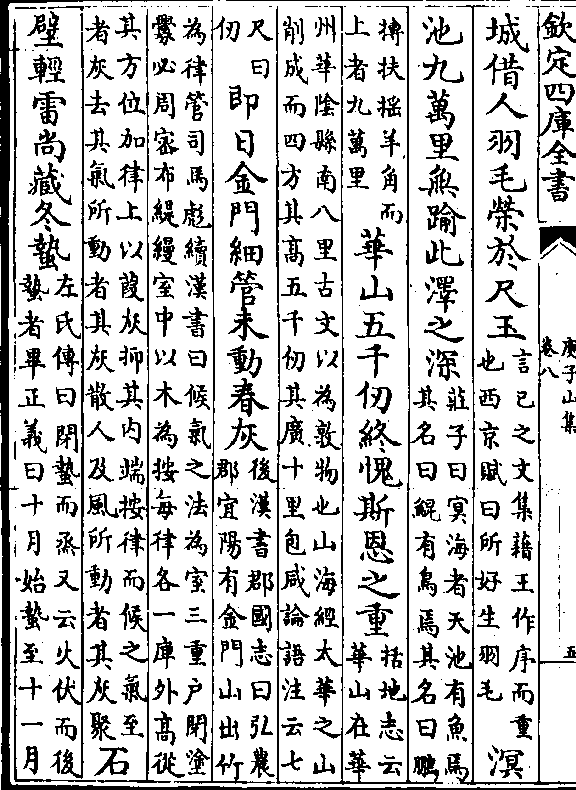 欽定四庫全書
庾子山集
卷八
五
城借人羽毛榮於尺玉
言已之文集藉王作序而重
也西京賦曰所好生羽毛
溟
池九萬里無踰此澤之深
莊子曰冥海者天池有魚焉
其名曰鯤有鳥焉其名曰鵬
摶扶摇羊角而
上者九萬里
華山五千仞終愧斯恩之重
括地志云
華山在華
州華陰縣南八里古文以為敦物也山海經太華之山
削成而四方其高五千仞其廣十里包咸論語注云七
尺曰
仞
即日金門細管未動春灰
後漢書郡國志曰弘農
郡宜陽有金門山出竹
為律管司馬彪續漢書曰候氣之法為室三重户閉塗
釁必周密布緹縵室中以木為按每律各一庫外高從
其方位加律上以葭灰抑其内端按律而候之氣至
者灰去其氣所動者其灰散人及風所動者其灰聚
石
壁輕雷尚藏冬蟄
左氏傳曰閉蟄而烝又云火伏而後
蟄者畢正義曰十月始蟄至十一月